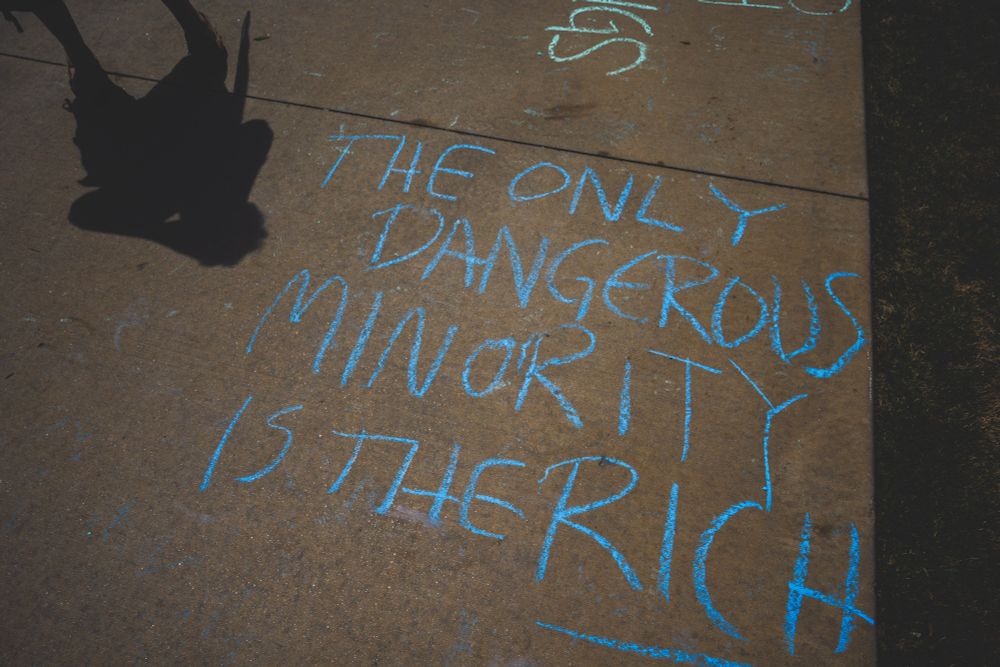 THE ONLY
DANGEROUS
MINORITY
IS THE RICH